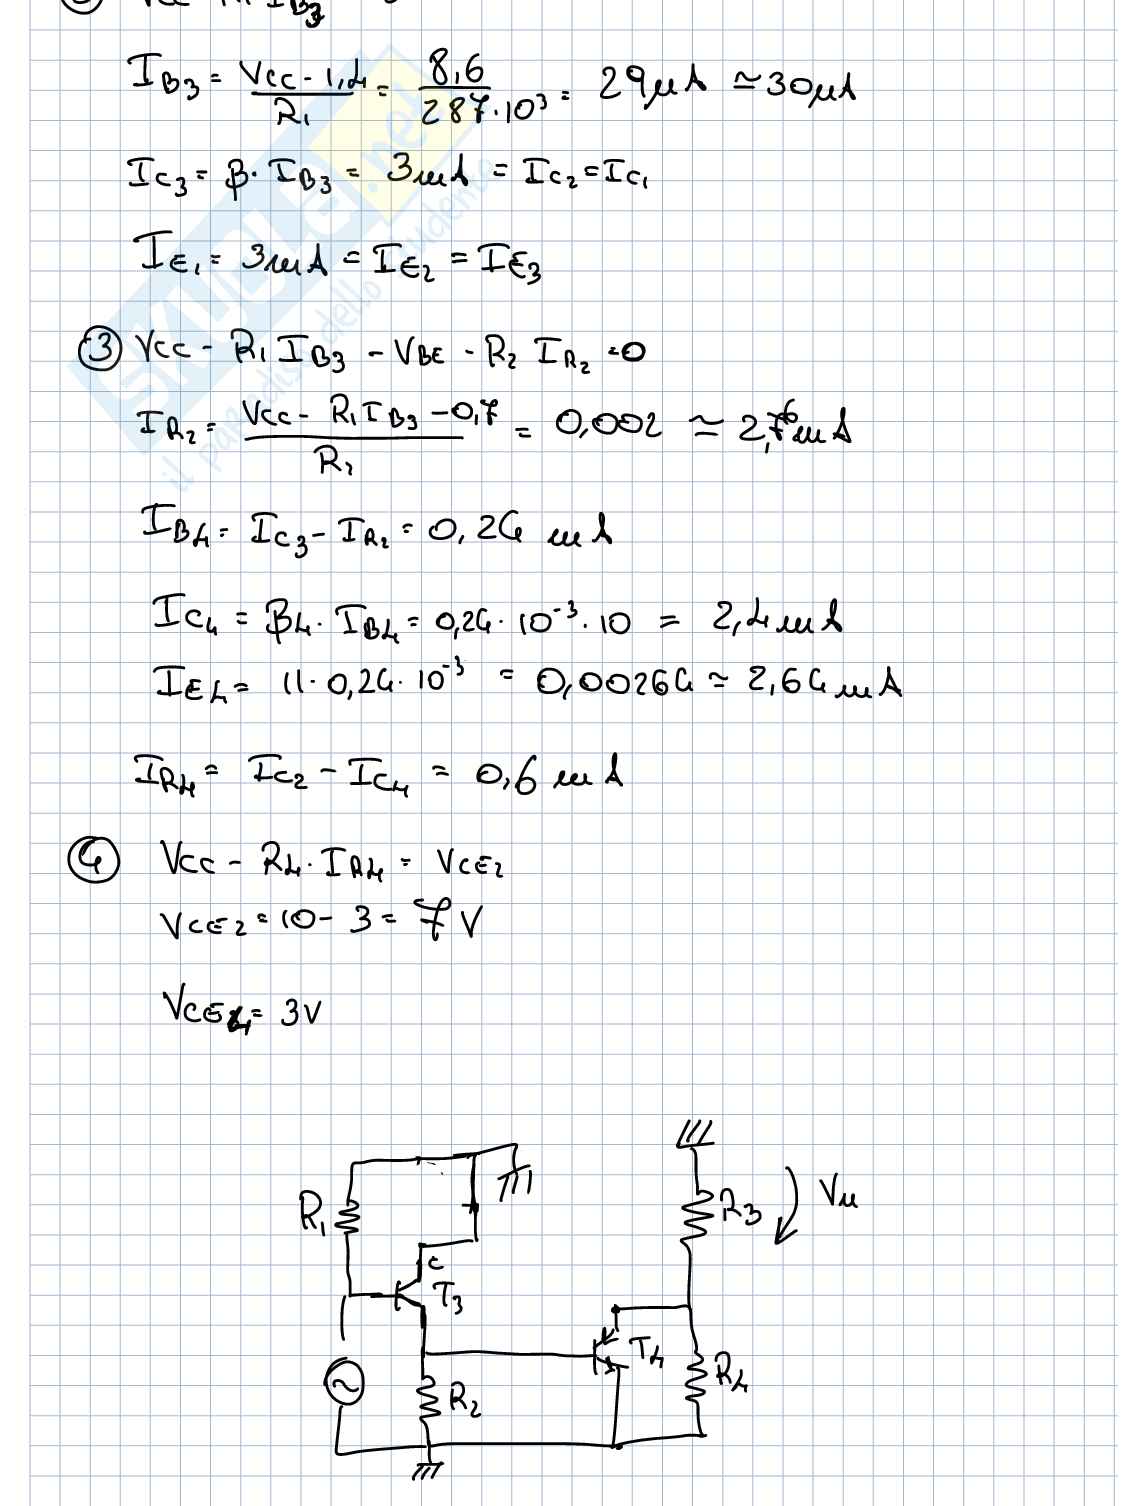 I_B3 = (Vcc - 1,4)/R1 = 8,6/(287·10^3) = 29μA ≃ 30μA
I_C3 = β · I_B3 = 3mA = I_C2 = I_C1
I_E1 = 3mA = I_E2 = I_E3
③ Vcc - R1 I_B3 - V_BE - R2 I_R2 = 0
I_R2 = (Vcc - R1 I_B3 - 0,7)/R2 = 0,002 ≃ 2,76mA
I_B4 = I_C3 - I_R2 = 0,24 mA
I_C4 = β4 · I_B4 = 0,24 · 10^-3 · 10 = 2,4mA
I_E4 = 11 · 0,24 · 10^-3 = 0,00264 ≃ 2,64mA
I_R4 = I_C2 - I_C4 = 0,6 mA
④ Vcc - R4 · I_R4 = V_CE2
V_CE2 = 10 - 3 = 7V
V_CE4 = 3V
R1
C
T3
R2
T4
R3
Vu
R4
SKUOLA.net
il paradiso dello studente